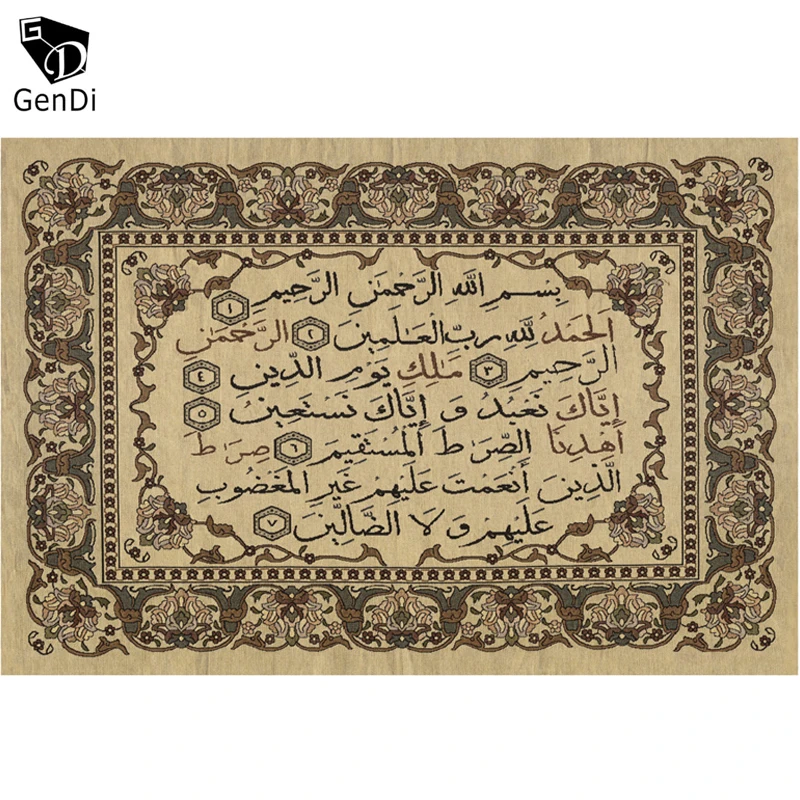 GD
GenDi
بِسْمِ اللهِ الرَّحْمٰنِ الرَّحِيمِ ١
الْحَمْدُ لِلّٰهِ رَبِّ الْعَـٰلَمِينَ ٢ الرَّحْمٰنِ
الرَّحِيمِ ٣ مَـٰلِكِ يَوْمِ الدِّينِ ٤
إِيَّاكَ نَعْبُدُ وَ إِيَّاكَ نَسْتَعِينُ ٥
اهْدِنَا الصِّرَٰطَ الْمُسْتَقِيمَ ٦ صِرَٰطَ
الَّذِينَ أَنْعَمْتَ عَلَيْهِمْ غَيْرِ الْمَغْضُوبِ
عَلَيْهِمْ وَلَا الضَّالِّينَ ٧